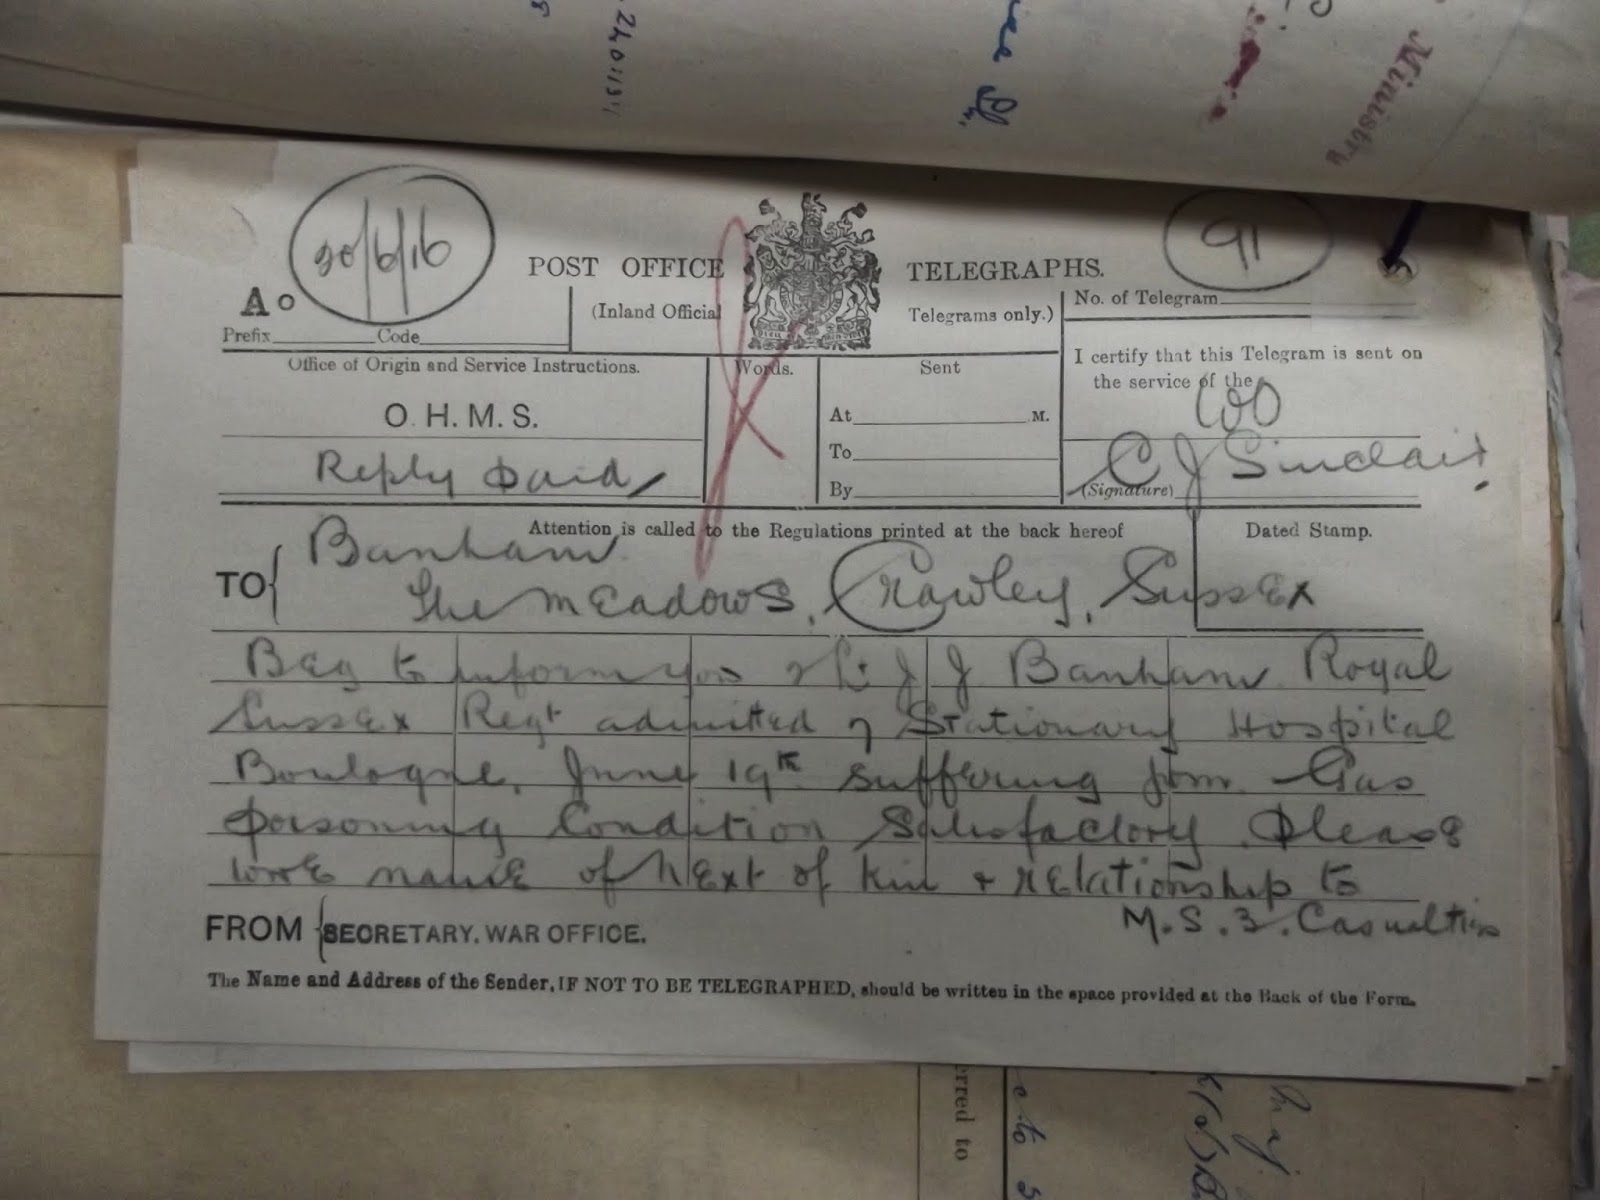 240113
Ministry
20/6/16
91
POST OFFICE TELEGRAPHS.
A o
(Inland Official Telegrams only.)
No. of Telegram
Prefix Code
Office of Origin and Service Instructions.
Words.
Sent
I certify that this Telegram is sent on
the service of the
WO
O.H.M.S.
At M.
Reply paid
To
C J Sinclair
By
(Signature)
Attention is called to the Regulations printed at the back hereof
Dated Stamp.
TO Banham
The Meadows, Crawley, Sussex
Beg to inform you 2/Lt J J Banham Royal
Sussex Regt admitted 7 Stationary Hospital
Boulogne, June 19th suffering from Gas
poisoning Condition Satisfactory Please
wire name of next of kin + relationship to
M.S.3. Casualties
FROM SECRETARY. WAR OFFICE.
The Name and Address of the Sender, IF NOT TO BE TELEGRAPHED, should be written in the space provided at the Back of the Form.
rred to